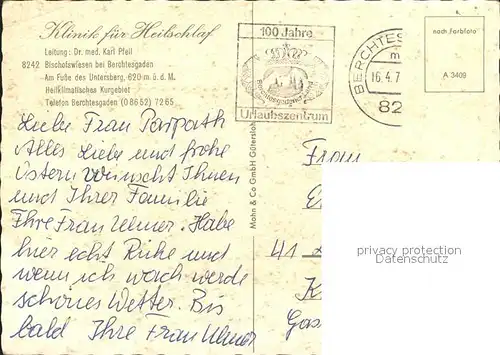 Klinik für Heilschlaf
Leitung: Dr. med. Karl Pfeil
8242 Bischofswiesen bei Berchtesgaden
Am Fuße des Untersberg, 620 m. ü. d. M.
Heilklimatisches Kurgebiet
Telefon Berchtesgaden (08652) 7265
100 Jahre
Berchtesgadener Land
Urlaubszentrum
BERCHTES
m
16.4.7
82
nach Farbfoto
A 3409
Mohn & Co GmbH Gütersloh
Liebe Frau
Alles Liebe und frohe
Ostern wünscht Ihnen
und Ihrer Familie
Ihre Frau Ulmer. Habe
hier echt Ruhe und
wenn ich wach werde
schönes Wetter. Bis
bald Ihre Frau Ulmer
Frau
E
41
K
Gas
privacy protection
Datenschutz